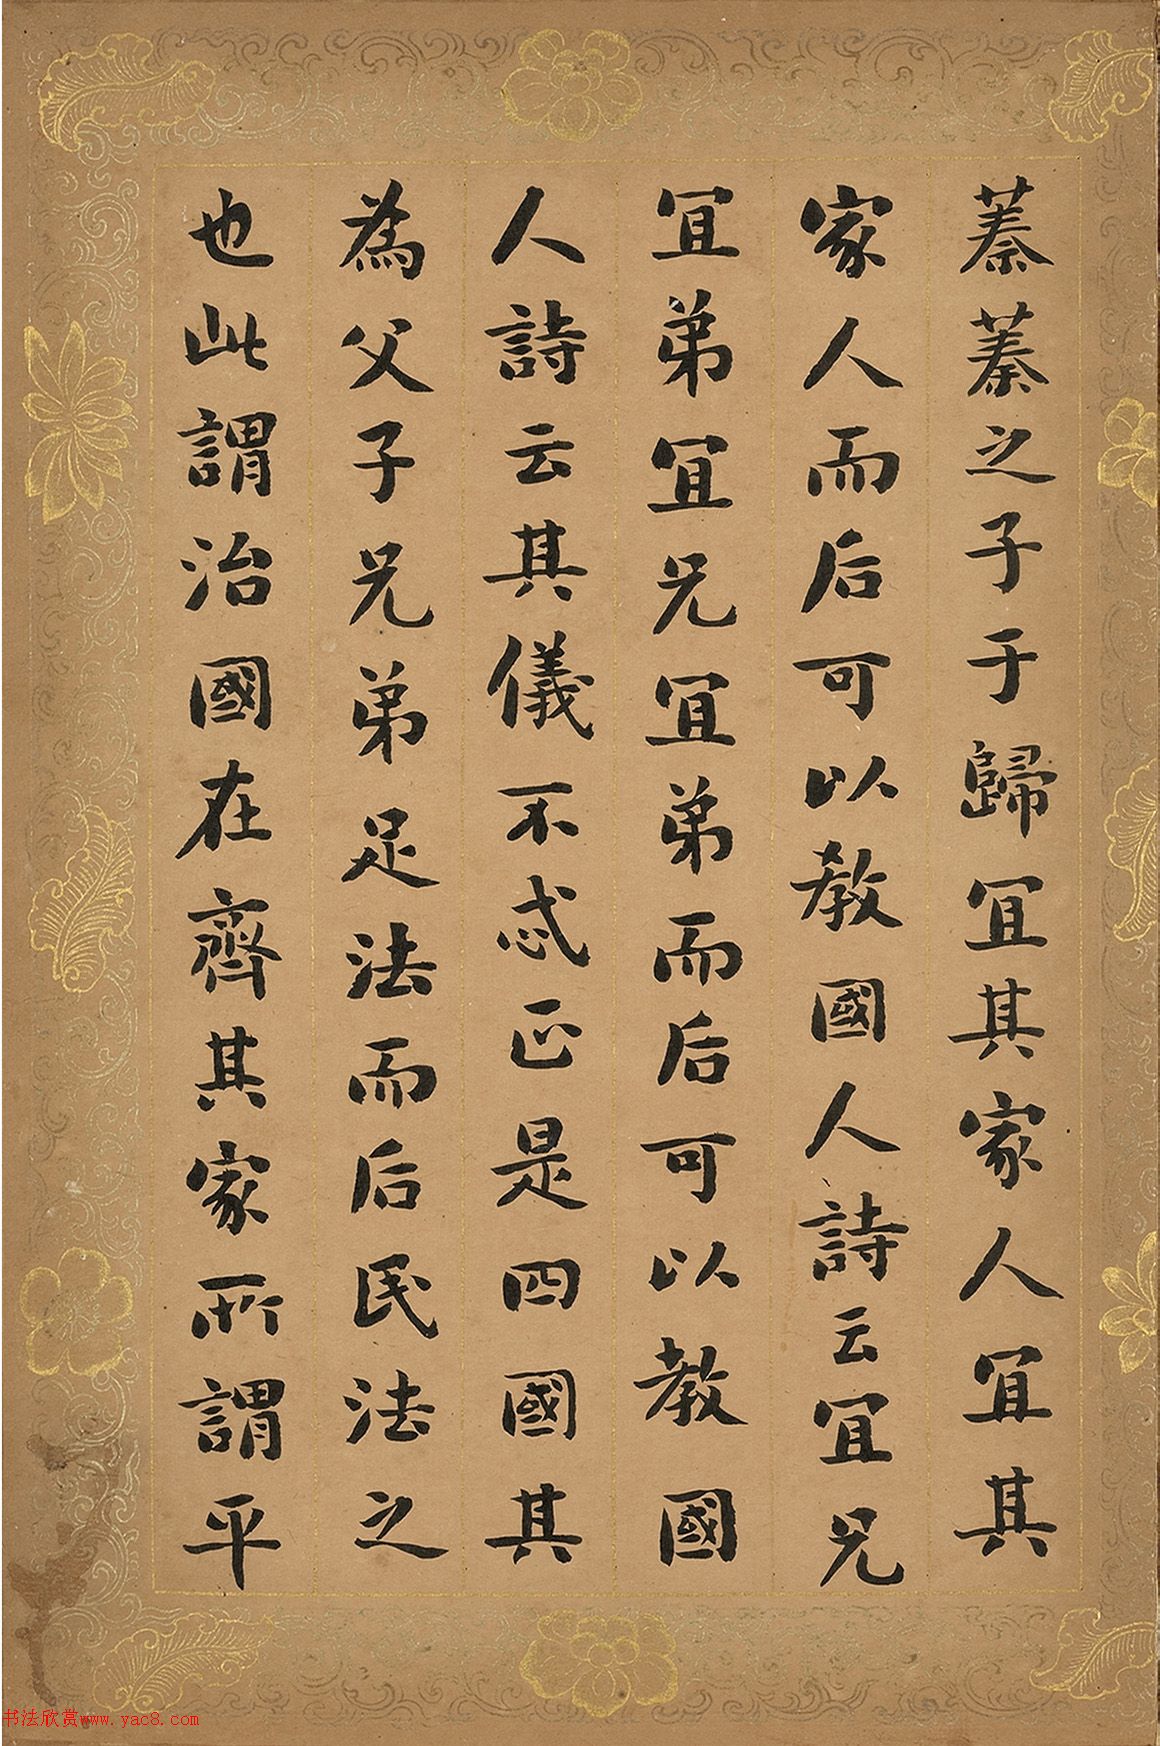 蓁蓁之子于歸宜其家人宜其
家人而后可以教國人詩云宜兄
宜弟宜兄宜弟而后可以教國
人詩云其儀不忒正是四國其
為父子兄弟足法而后民法之
也此謂治國在齊其家所謂平
书法欣赏www.yac8.com